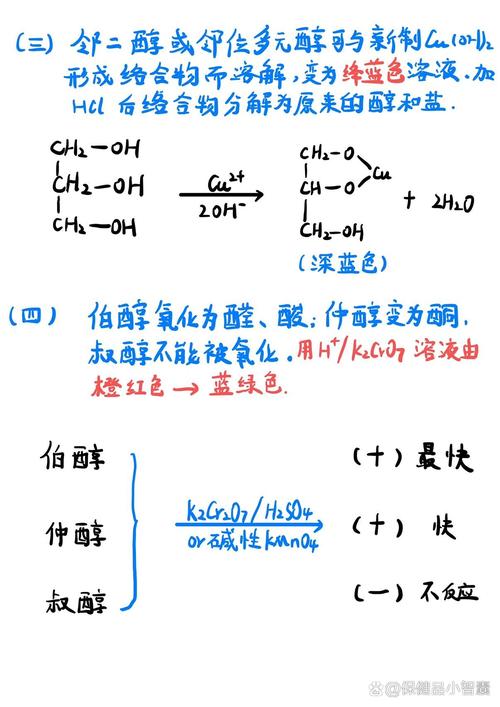 (三) 邻二醇或邻位多元醇可与新制Cu(OH)2
形成络合物而溶解,变为绛蓝色溶液.加
HCl 后络合物分解为原来的醇和盐.
CH2-OH
CH2-OH
CH2-OH
Cu2+
2OH-
CH2-O
CH-O
Cu
CH2-OH
+ 2H2O
(深蓝色)
(四) 伯醇氧化为醛、酸;仲醇变为酮,
叔醇不能被氧化.用H+/K2CrO7溶液由
橙红色→蓝绿色.
伯醇
仲醇
叔醇
K2Cr2O7/H2SO4
or碱性KMnO4
(+) 最快
(+) 快
(-) 不反应
@保健品小智囊